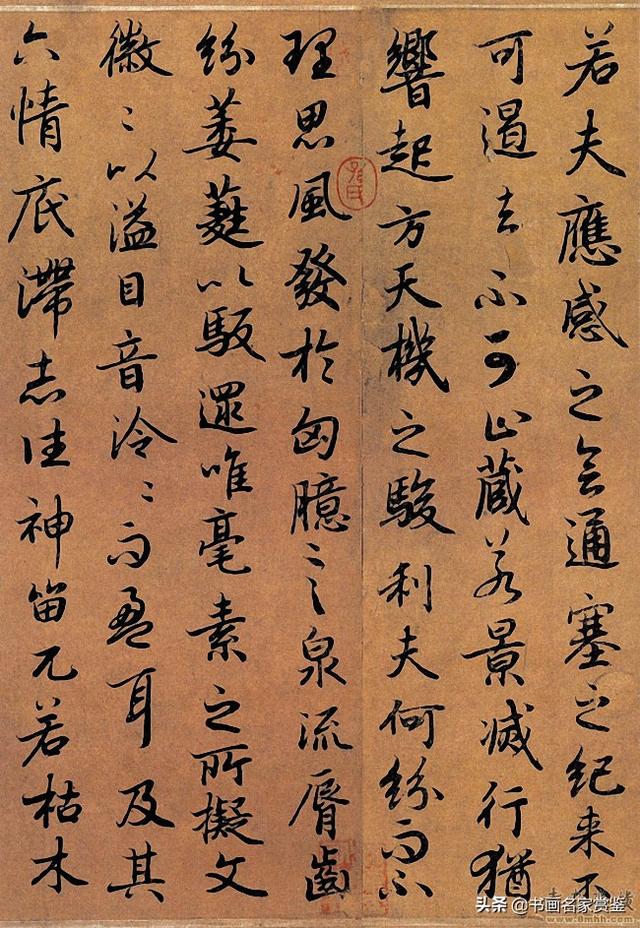 若夫應感之會通塞之紀来不
可遏去不可止藏若景滅行猶
響起方天機之駿利夫何紛而不
理思風發於匈臆言泉流脣齒
紛萎蕤以馺遝唯毫素之所擬文
徽〻以溢目音泠〻而盈耳及其
六情底滯志往神留兀若枯木
头条 @书画名家赏鉴
www.8mhh.com